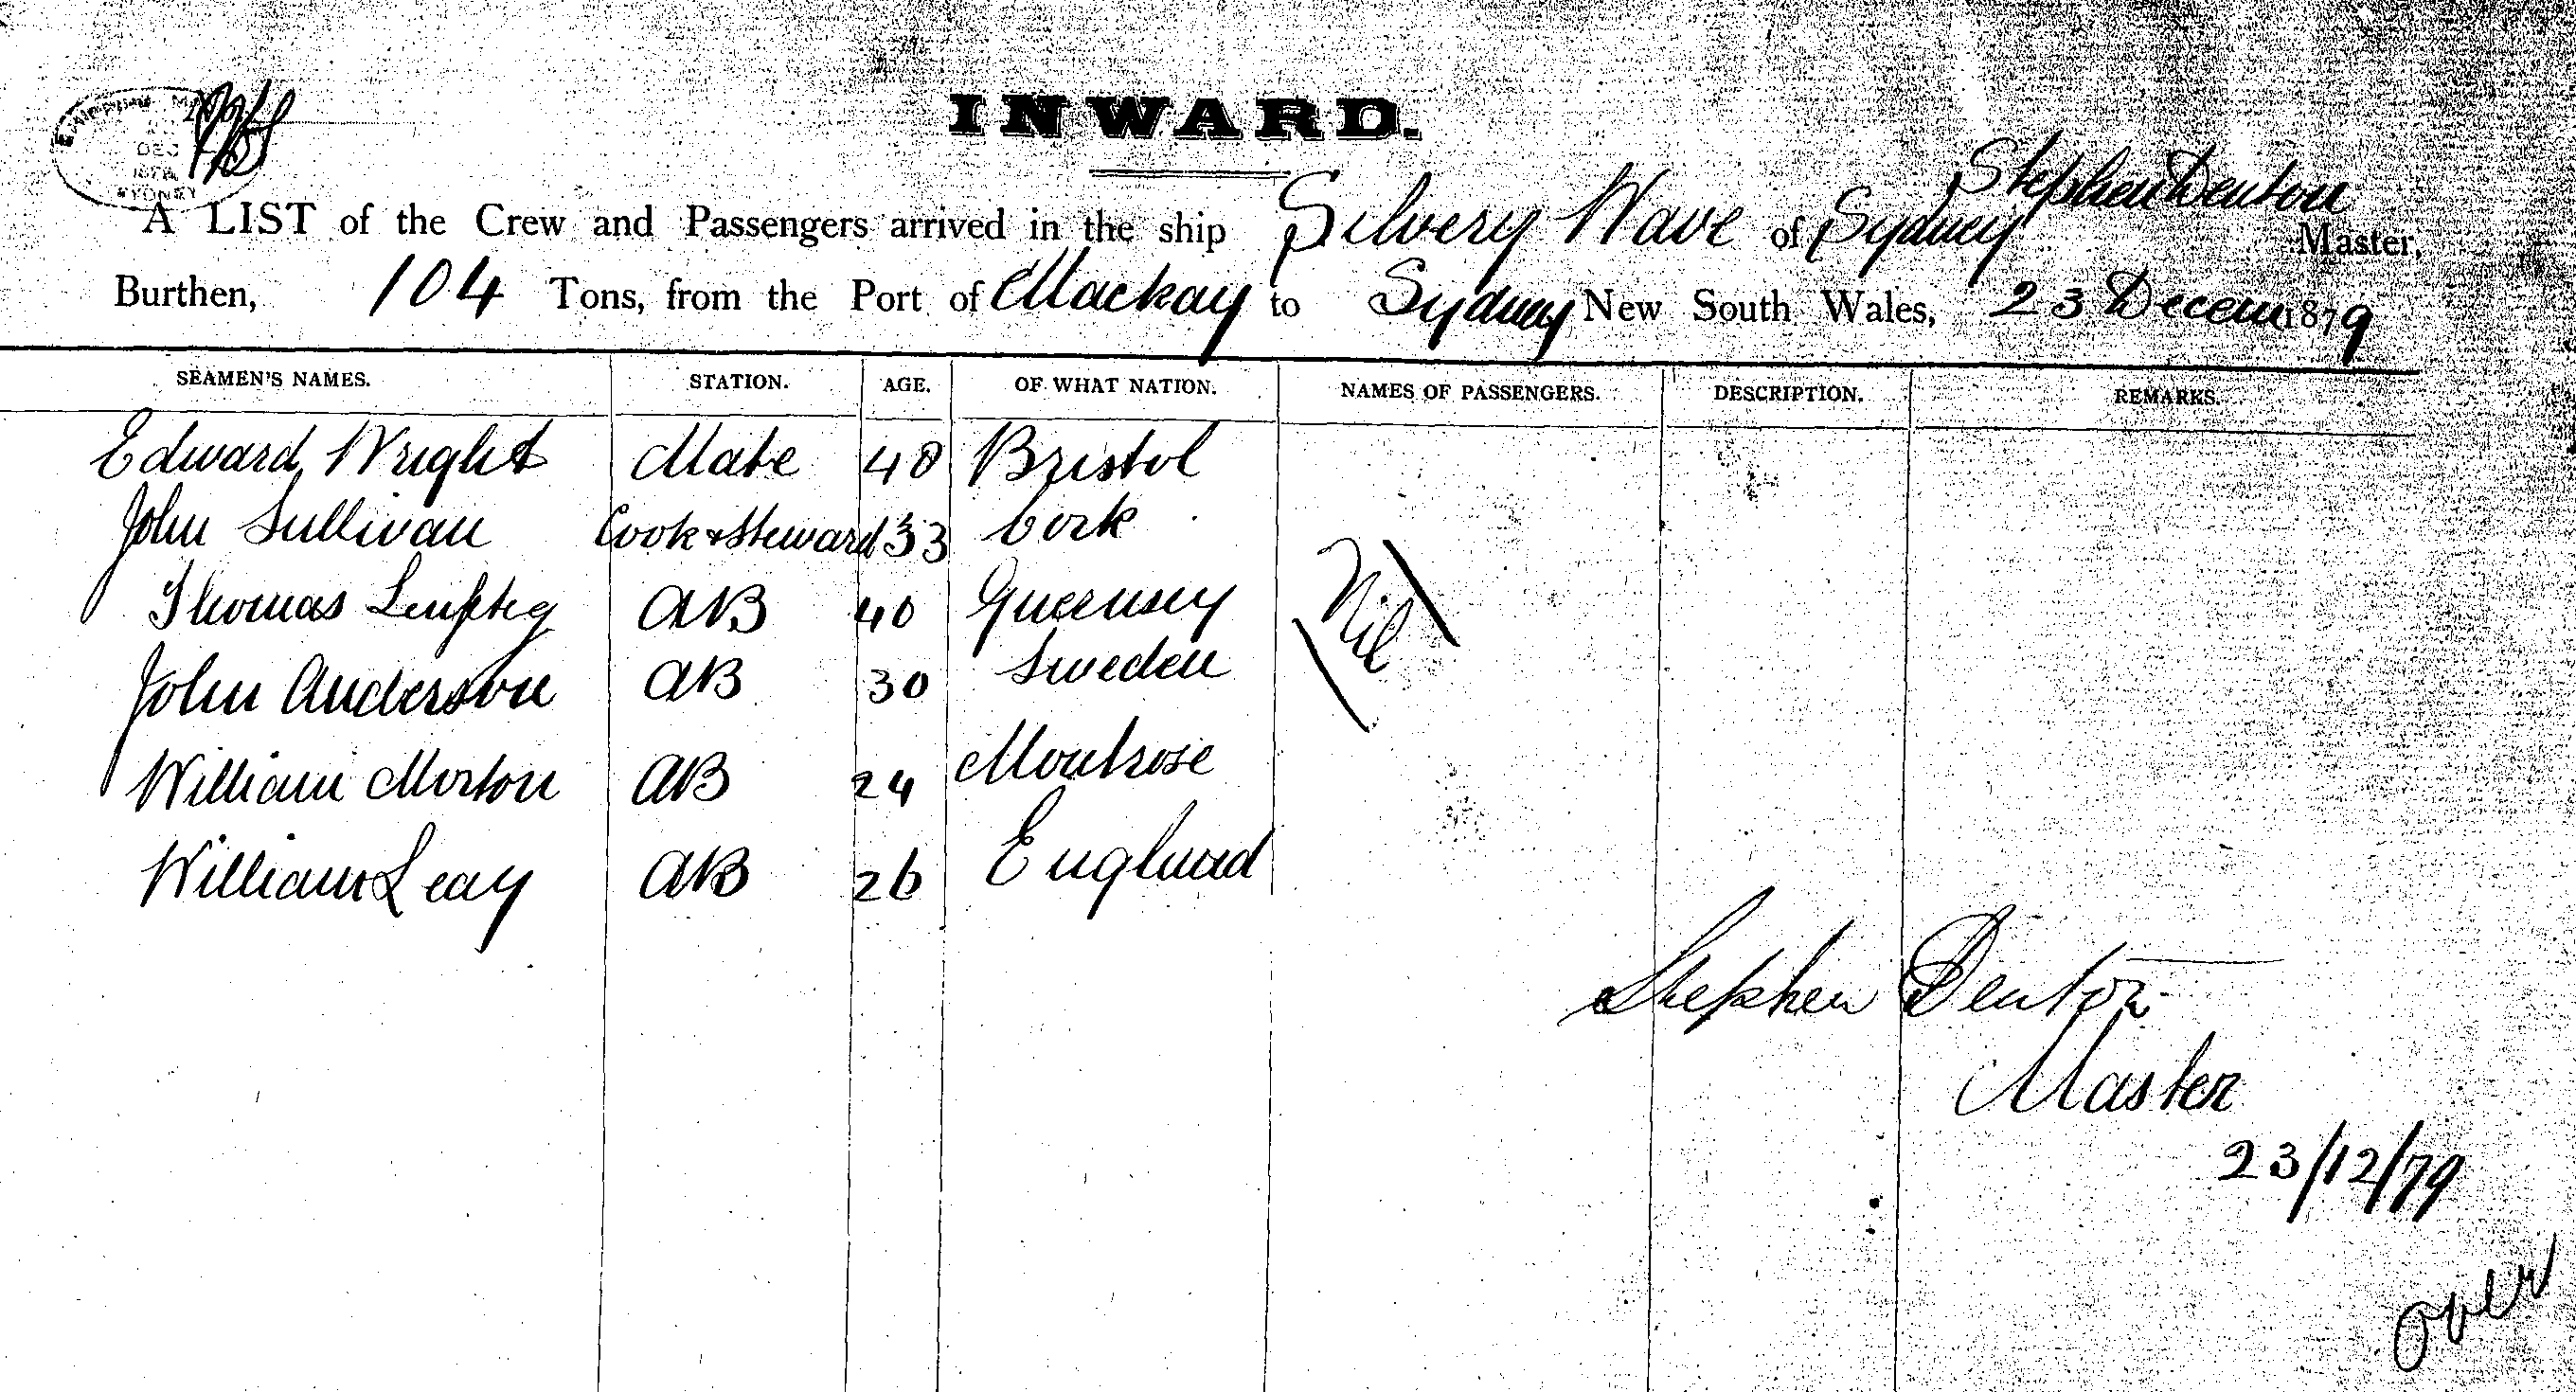 DEC
SYDNEY
INWARD.
Stephen Denton
A LIST of the Crew and Passengers arrived in the ship Silvery Wave of Sydney Master,
Burthen, 104 Tons, from the Port of Mackay to Sydney New South Wales, 23 Decem 1879
SEAMEN'S NAMES. STATION. AGE. OF WHAT NATION. NAMES OF PASSENGERS. DESCRIPTION. REMARKS.
Edward Wright Mate 40 Bristol
John Sullivan Cook & Steward 33 Cork
Thomas AB 40 Guernsey
Nil
John Anderson AB 30 Sweden
William Morton AB 24 Montrose
William Leay AB 26 England
Stephen Denton
Master
23/12/79
over